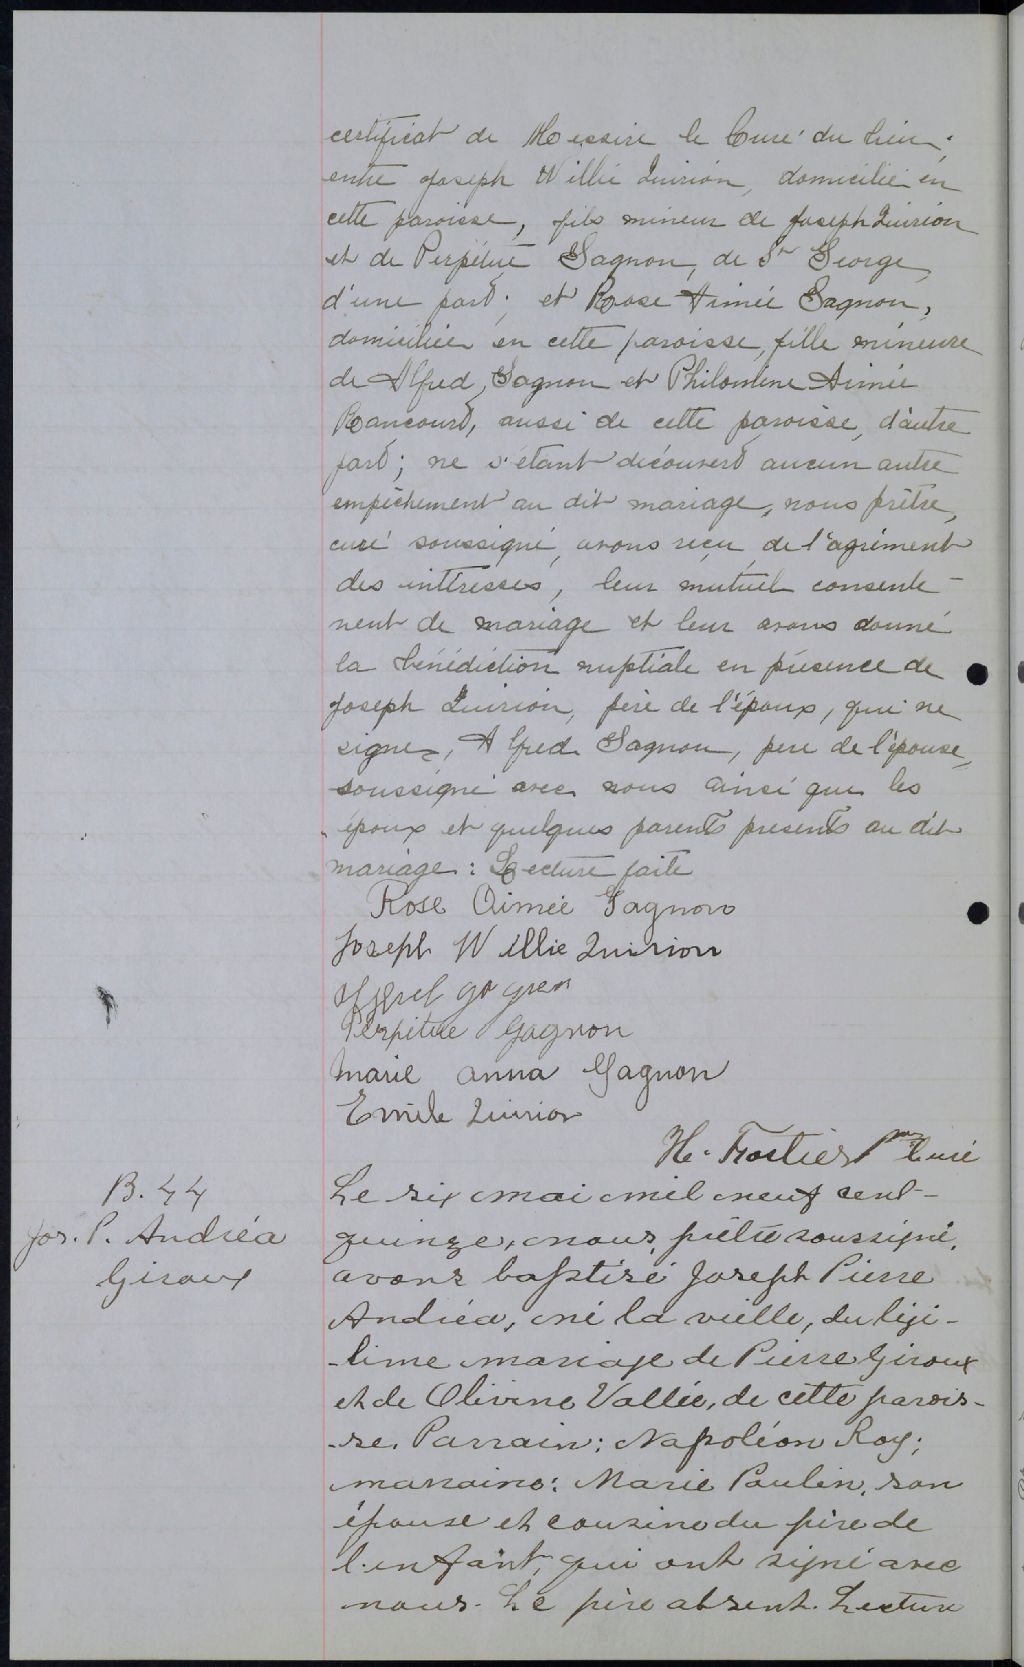 certificat de Messire le Curé du lieu;
entre Joseph Willie Quirion, domicilié en
cette paroisse, fils mineur de Joseph Quirion
et de Perpétue Gagnon, de St George,
d'une part; et Rose Aimée Gagnon,
domiciliée en cette paroisse, fille mineure
de Alfred Gagnon et Philomène Aimée
Rancourt, aussi de cette paroisse, d'autre
part; ne s'étant découvert aucun autre
empêchement au dit mariage, nous prêtre,
curé soussigné, avons reçu de l'agrément
des intéressés, leur mutuel consente-
ment de mariage et leur avons donné
la bénédiction nuptiale en présence de
Joseph Quirion, père de l'époux, qui ne
signe, Alfred Gagnon, père de l'épouse,
soussigné avec nous ainsi que les
époux et quelques parents présents au dit
mariage: Lecture faite
Rose Aimée Gagnon
Joseph Willie Quirion
Perpitue Gagnon
Marie anna Gagnon
Emile Quirion
H. Fortier Ptre Curé
B. 44
Jos. P. Andréa
Giroux
Le six mai mil neuf cent-
quinze, nous, prêtre soussigné,
avons baptisé Joseph Pierre
Andréa, né la veille, du légi-
-time mariage de Pierre Giroux
et de Olivine Vallée, de cette parois-
-se. Parrain: Napoléon Roy;
marraine: Marie Poulin, son
épouse et cousine du père de
l'enfant, qui ont signé avec
nous. Le père absent. Lecture